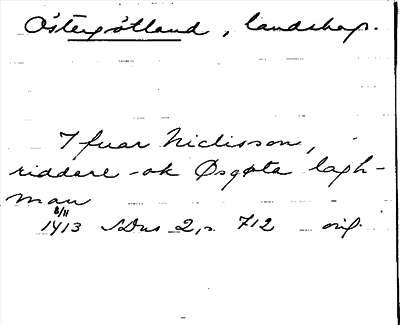 Östergötland, landskap.
Ifuar Niclisson,
riddare ok Øsgøta lagh-
man
8/11
1413 SDns 2, s. 712 orig.